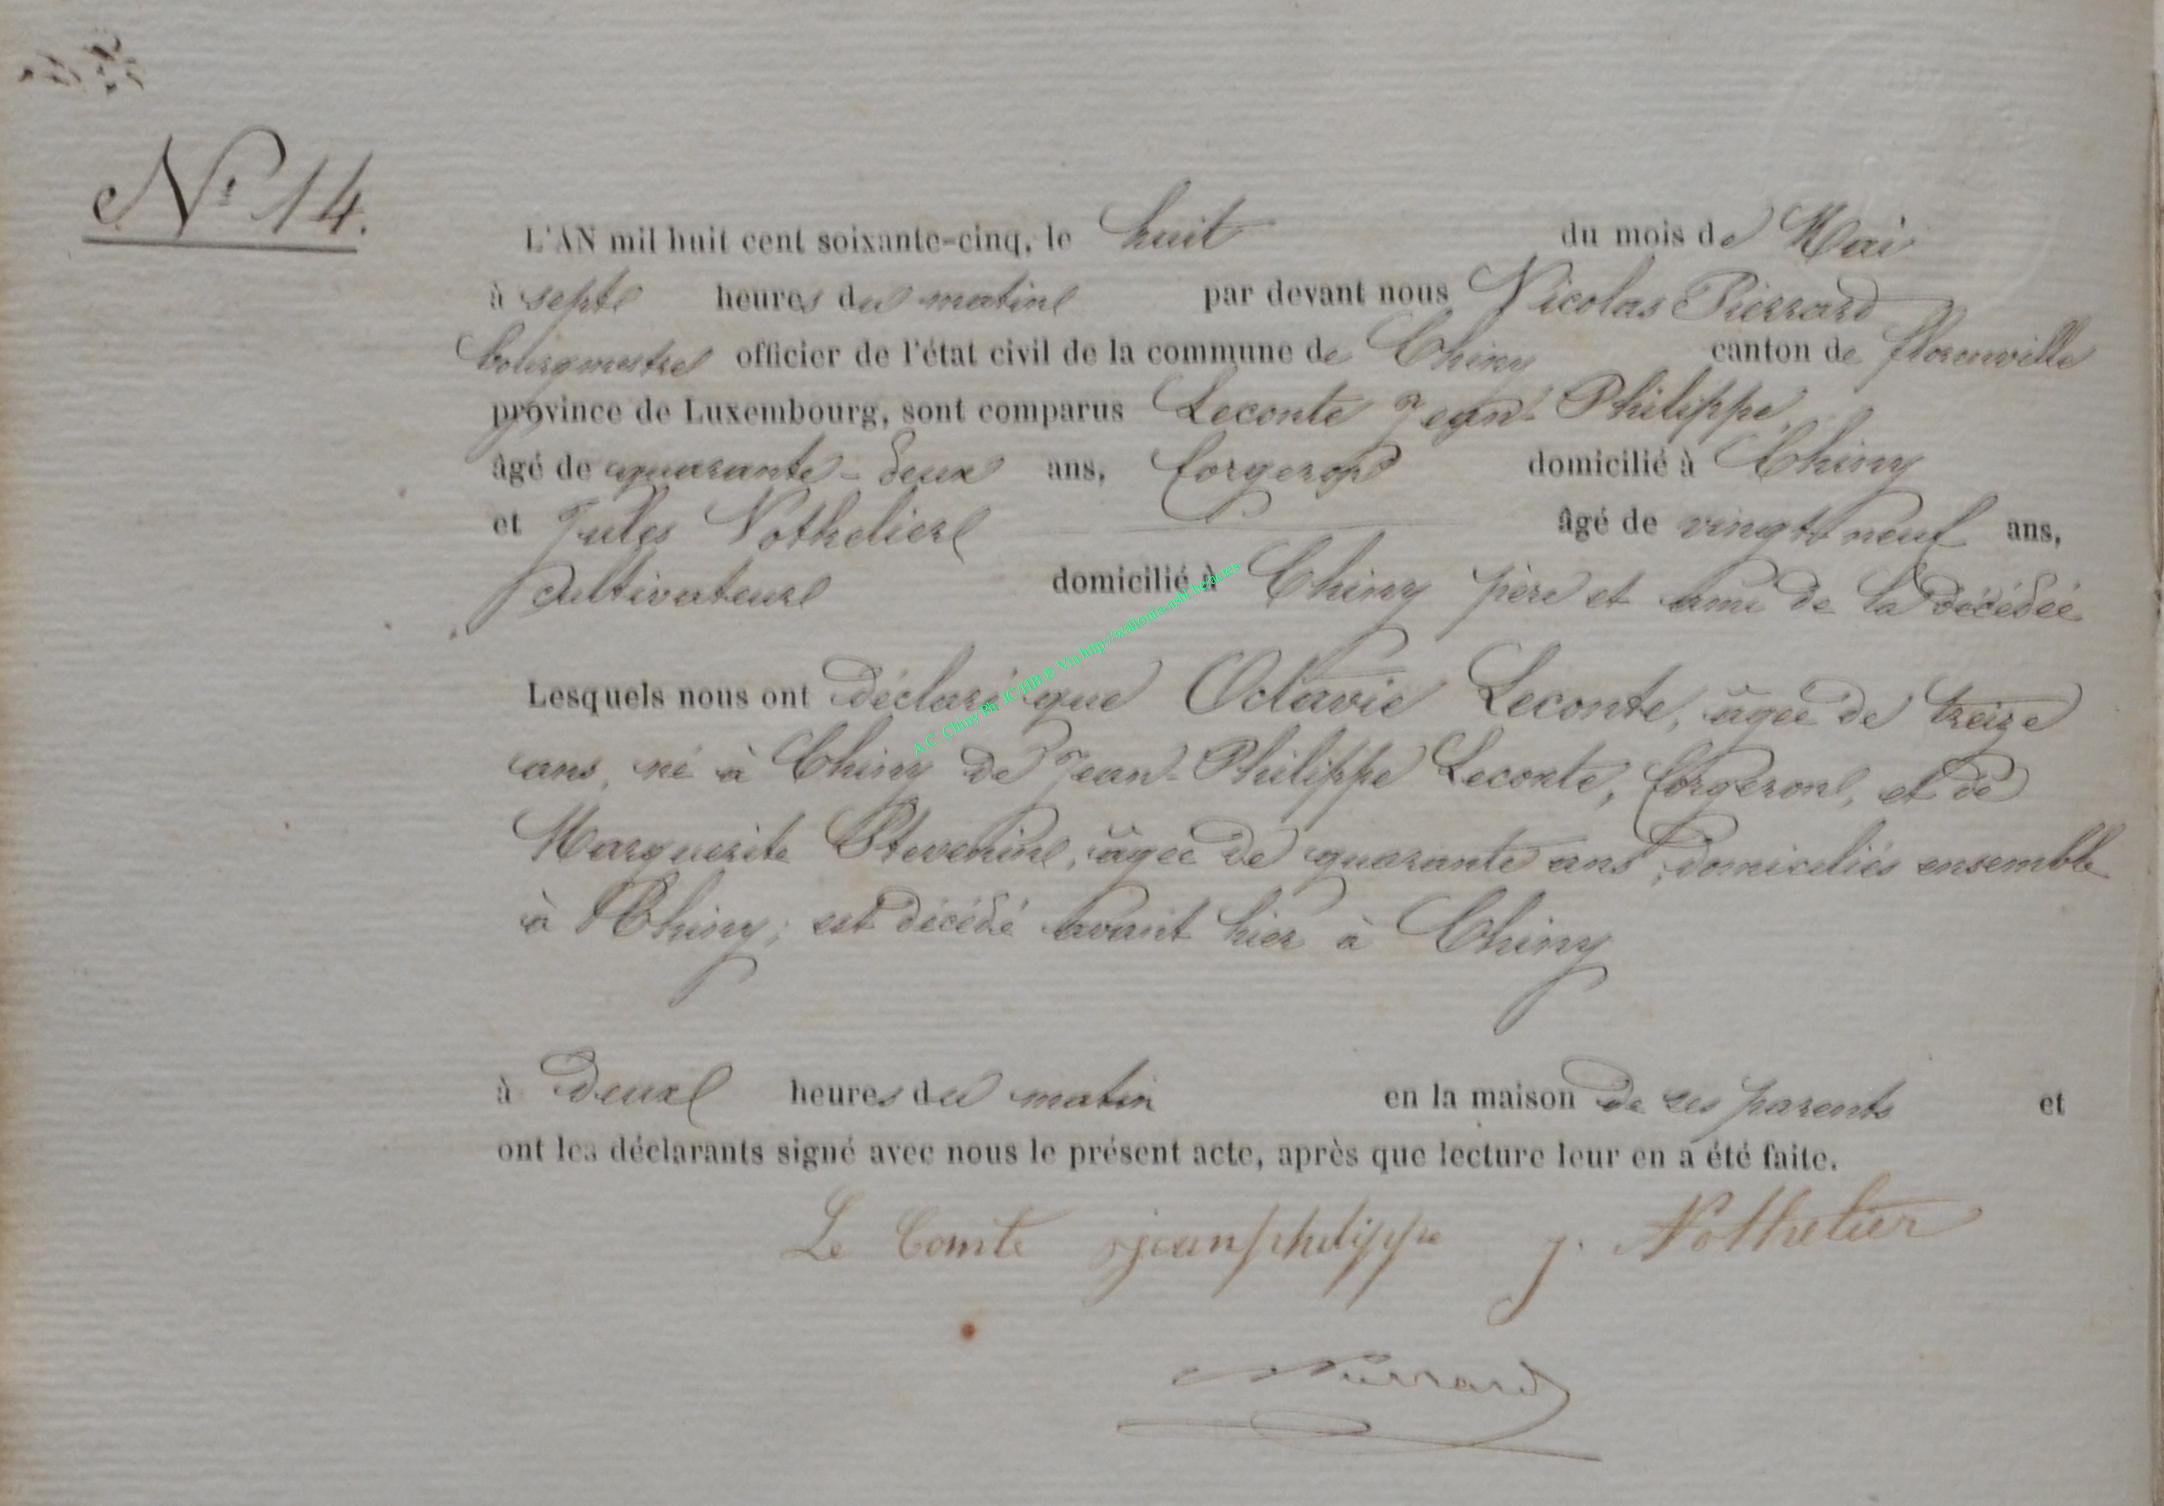 N° 14.
L'AN mil huit cent soixante-cinq, le huit du mois de Mai
à sept heures du matin par devant nous Nicolas Pierrard
bourgmestre officier de l'état civil de la commune de Chiny canton de florenville
province de Luxembourg, sont comparus Leconte Jean-Philippe,
âgé de quarante-deux ans, forgeron domicilié à Chiny
et Jules Nothelier âgé de vingt neuf ans,
cultivateur domicilié à Chiny père et ami de la décédée
Lesquels nous ont déclaré que Octavie Leconte, âgée de treize
ans, né à Chiny de Jean-Philippe Leconte, forgeron, et de
Marguerite Stevenin, âgée de quarante ans, domiciliés ensemble
à Chiny; est décédé avant hier à Chiny
à deux heures du matin en la maison de ses parents et
ont les déclarants signé avec nous le présent acte, après que lecture leur en a été faite.
Le Comte jean philippe j. Nothelier
NPierrard
A.C. Chiny Ph. JC/HB & Via http://wallonia-asbl.be/actes